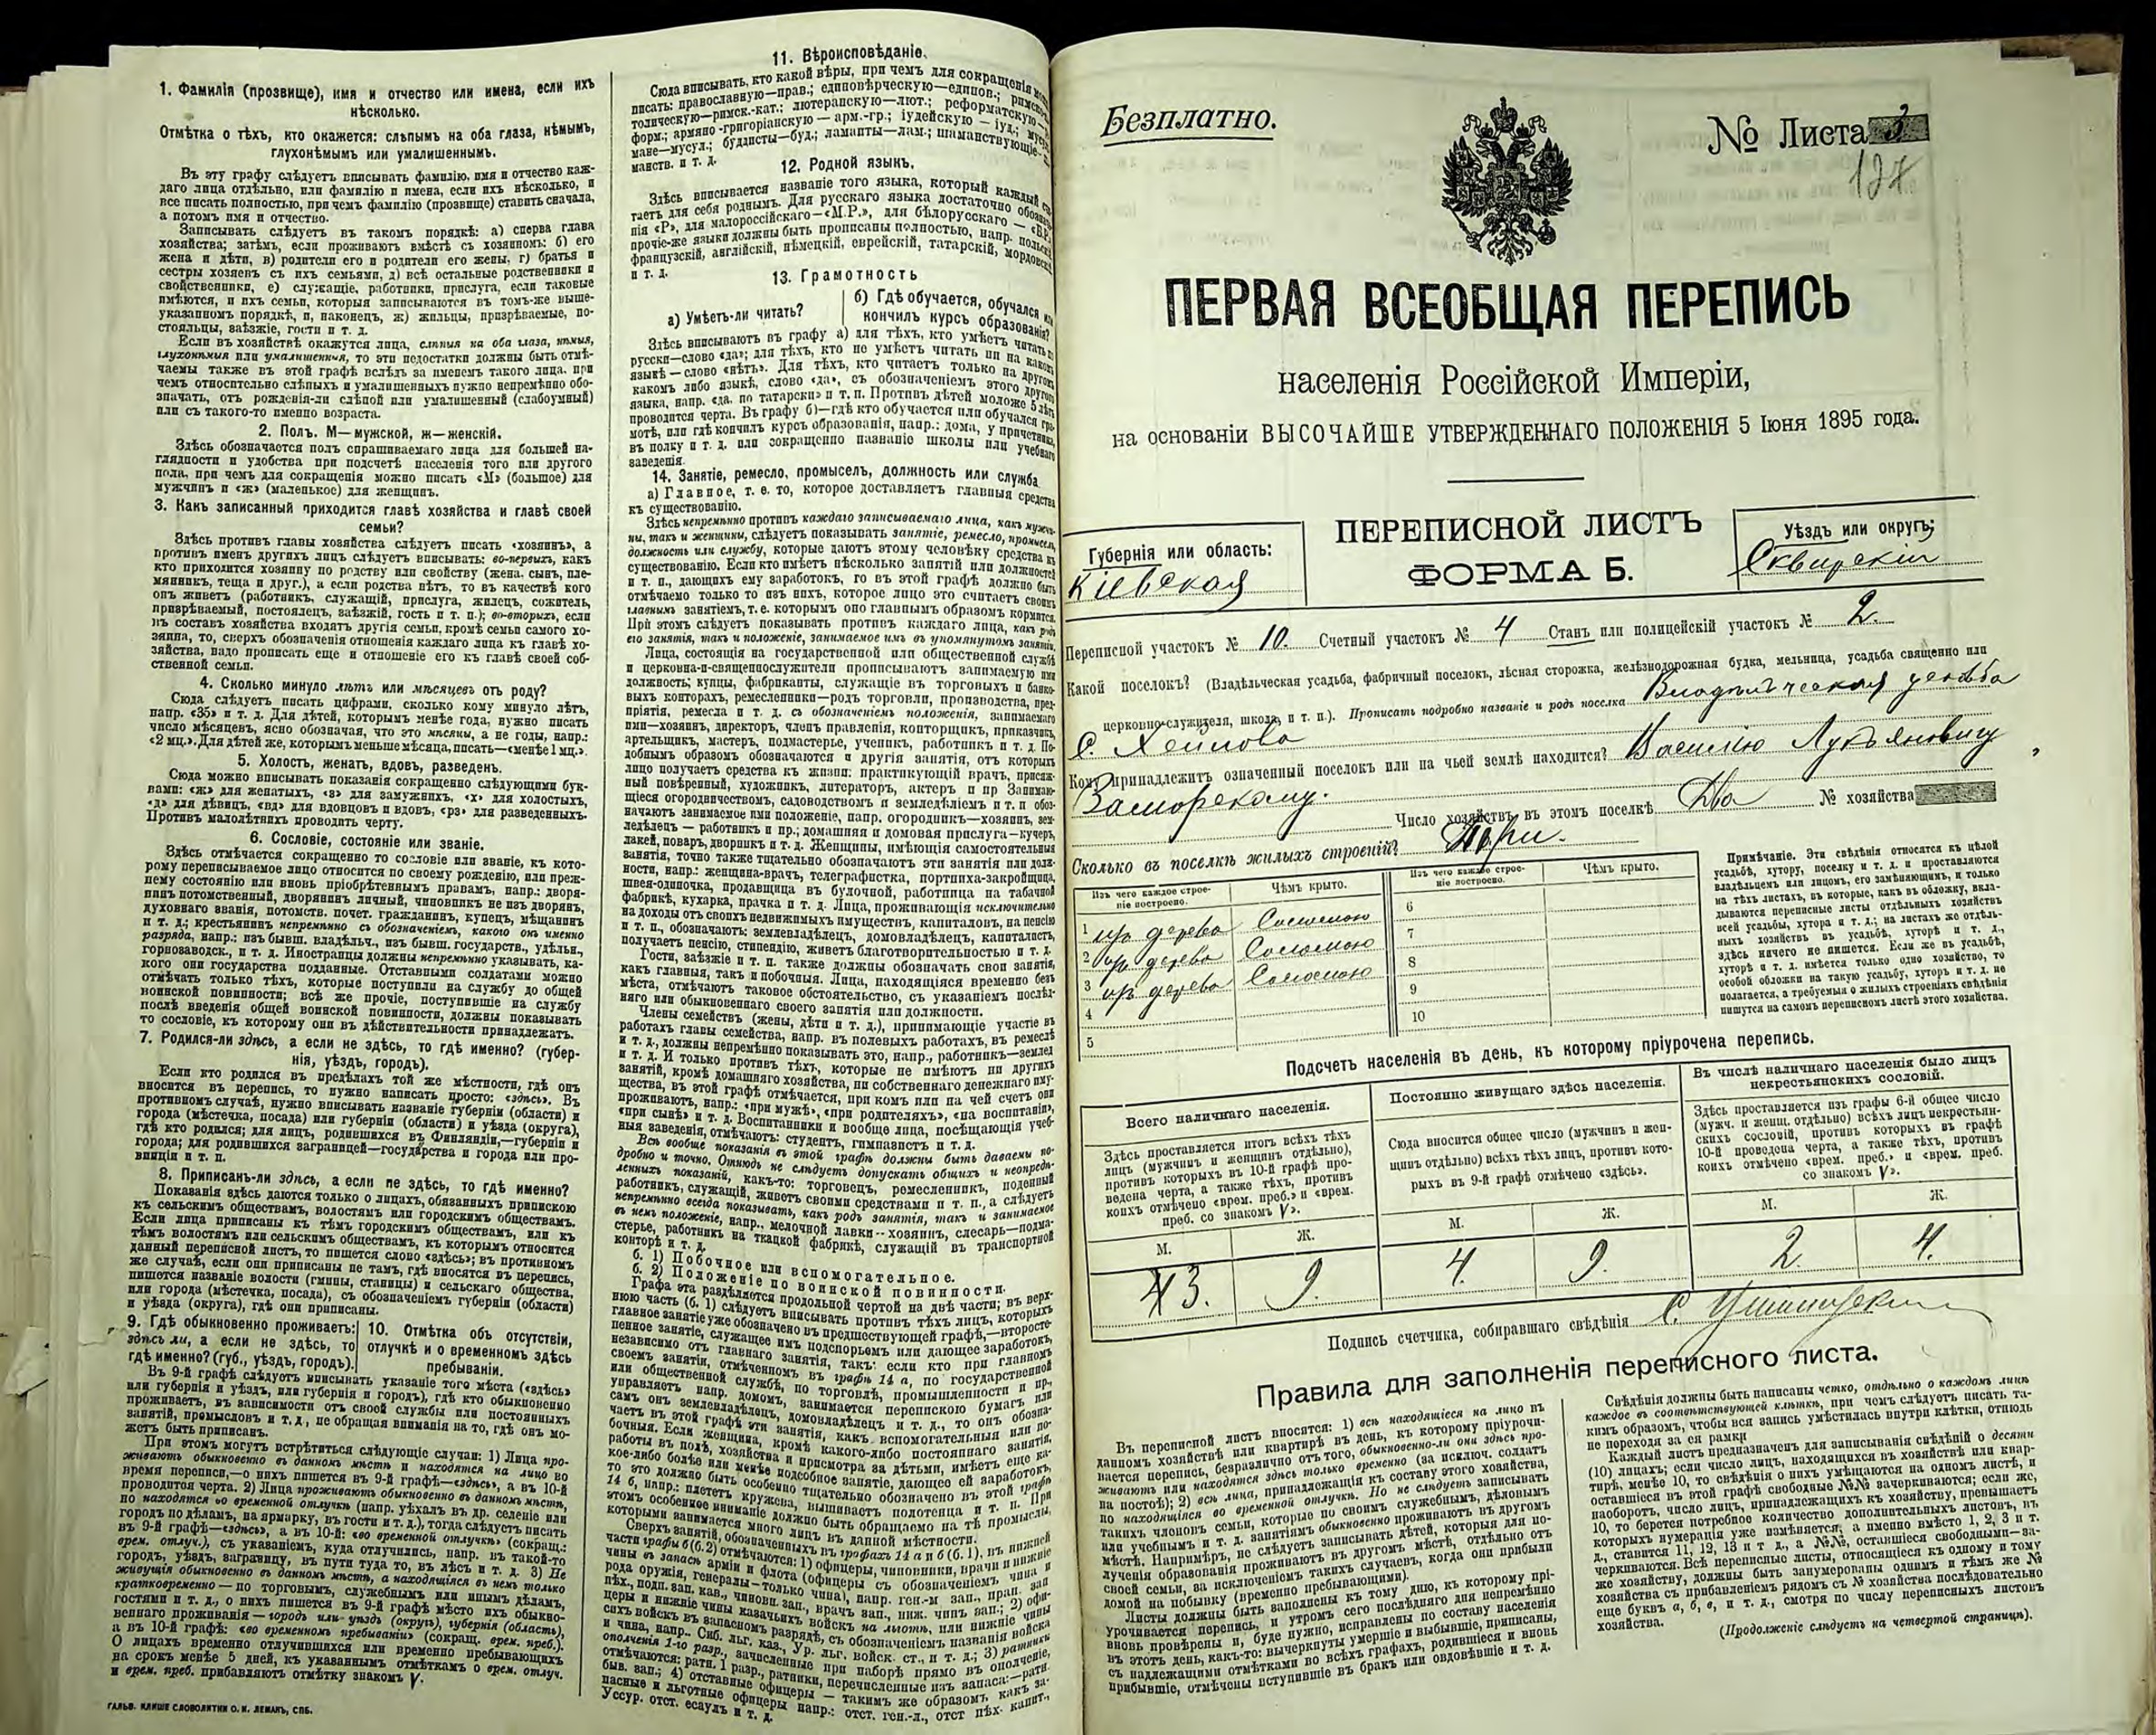 1. Фамилія (прозвище), имя и отчество или имена, если ихъ
нѣсколько.
Отмѣтка о тѣхъ, кто окажется: слѣпымъ на оба глаза, нѣмымъ,
глухонѣмымъ или умалишеннымъ.
Въ эту графу слѣдуетъ вписывать фамилію, имя и отчество каж-
даго лица отдѣльно, или фамилію и имена, если ихъ нѣсколько, и
все писать полностью, при чемъ фамилію (прозвище) ставить сначала,
а потомъ имя и отчество.
Записывать слѣдуетъ въ такомъ порядкѣ: а) сперва глава
хозяйства; затѣмъ, если проживаютъ вмѣстѣ съ хозяиномъ: б) его
жена и дѣти, в) родители его и родители его жены, г) братья и
сестры хозяевъ съ ихъ семьями, д) всѣ остальные родственники и
свойственники, е) служащіе, работники, прислуга, если таковые
имѣются, и ихъ семьи, которыя записываются въ томъ-же выше-
указанномъ порядкѣ, и, наконецъ, ж) жильцы, призрѣваемые, по-
стояльцы, заѣзжіе, гости и т. д.
Если въ хозяйствѣ окажутся лица, слѣпыя на оба глаза, нѣмыя,
глухонѣмыя или умалишенныя, то эти недостатки должны быть отмѣ-
чаемы также въ этой графѣ вслѣдъ за именемъ такого лица, при
чемъ относительно слѣпыхъ и умалишенныхъ нужно непремѣнно обо-
значать, отъ рожденія-ли слѣпой или умалишенный (слабоумный)
или съ такого-то именно возраста.
2. Полъ. М—мужской, ж—женскій.
Здѣсь обозначается полъ спрашиваемаго лица для большей на-
глядности и удобства при подсчетѣ населенія того или другого
пола, при чемъ для сокращенія можно писать «М» (большое) для
мужчинъ и «ж» (маленькое) для женщинъ.
3. Какъ записанный приходится главѣ хозяйства и главѣ своей
семьи?
Здѣсь противъ главы хозяйства слѣдуетъ писать «хозяинъ», а
противъ именъ другихъ лицъ слѣдуетъ вписывать: во-первыхъ, какъ
кто приходится хозяину по родству или свойству (жена, сынъ, пле-
мянникъ, теща и друг.), а если родства нѣтъ, то въ качествѣ кого
онъ живетъ (работникъ, служащій, прислуга, жилецъ, сожитель,
призрѣваемый, постоялецъ, заѣзжій, гость и т. п.); во-вторыхъ, если
въ составъ хозяйства входятъ другія семьи, кромѣ семьи самого хо-
зяина, то, сверхъ обозначенія отношенія каждаго лица къ главѣ хо-
зяйства, надо прописать еще и отношеніе его къ главѣ своей соб-
ственной семьи.
4. Сколько минуло лѣтъ или мѣсяцевъ отъ роду?
Сюда слѣдуетъ писать цифрами, сколько кому минуло лѣтъ,
напр. «35» и т. д. Для дѣтей, которымъ менѣе года, нужно писать
число мѣсяцевъ, ясно обозначая, что это мѣсяцы, а не годы, напр.:
«2 мц.». Для дѣтей же, которымъ меньше мѣсяца, писать—«менѣе 1 мц.».
5. Холостъ, женатъ, вдовъ, разведенъ.
Сюда можно вписывать показанія сокращенно слѣдующими бук-
вами: «ж» для женатыхъ, «з» для замужнихъ, «х» для холостыхъ,
«д» для дѣвицъ, «вд» для вдовцовъ и вдовъ, «рз» для разведенныхъ.
Противъ малолѣтнихъ проводить черту.
6. Сословіе, состояніе или званіе.
Здѣсь отмѣчается сокращенно то сословіе или званіе, къ кото-
рому переписываемое лицо относится по своему рожденію, или преж-
нему состоянію или вновь пріобрѣтеннымъ правамъ, напр.: дворя-
нинъ потомственный, дворянинъ личный, чиновникъ не изъ дворянъ,
духовнаго званія, потомств. почет. гражданинъ, купецъ, мѣщанинъ
и т. д.; крестьянинъ непремѣнно съ обозначеніемъ, какого онъ именно
разряда, напр.: изъ бывш. владѣльч., изъ бывш. государств., удѣльн.,
горнозаводск., и т. д. Иностранцы должны непремѣнно указывать, ка-
кого они государства подданные. Отставными солдатами можно
отмѣчать только тѣхъ, которые поступили на службу до общей
воинской повинности; всѣ же прочіе, поступившіе на службу
послѣ введенія общей воинской повинности, должны показывать
то сословіе, къ которому они въ дѣйствительности принадлежатъ.
7. Родился-ли здѣсь, а если не здѣсь, то гдѣ именно? (губер-
нія, уѣздъ, городъ).
Если кто родился въ предѣлахъ той же мѣстности, гдѣ онъ
вносится въ перепись, то нужно написать просто: «здѣсь». Въ
противномъ случаѣ, нужно вписывать названіе губерніи (области) и
города (мѣстечка, посада) или губерніи (области) и уѣзда (округа),
гдѣ кто родился; для лицъ, родившихся въ Финляндіи,—губерніи и
города; для родившихся заграницей—государства и города или про-
винціи и т. п.
8. Приписанъ-ли здѣсь, а если не здѣсь, то гдѣ именно?
Показанія здѣсь даются только о лицахъ, обязанныхъ припискою
къ сельскимъ обществамъ, волостямъ или городскимъ обществамъ.
Если лица приписаны къ тѣмъ городскимъ обществамъ, или къ
тѣмъ волостямъ или сельскимъ обществамъ, къ которымъ относится
данный переписной листъ, то пишется слово «здѣсь»; въ противномъ
же случаѣ, если они приписаны не тамъ, гдѣ вносятся въ перепись,
пишется названіе волости (гмины, станицы) и сельскаго общества,
или города (мѣстечка, посада), съ обозначеніемъ губерніи (области)
и уѣзда (округа), гдѣ они приписаны.
9. Гдѣ обыкновенно проживаетъ:
здѣсь ли, а если не здѣсь, то
гдѣ именно? (губ., уѣздъ, городъ).
10. Отмѣтка объ отсутствіи,
отлучкѣ и о временномъ здѣсь
пребываніи.
Въ 9-й графѣ слѣдуетъ вписывать указаніе того мѣста («здѣсь»
или губернія и уѣздъ, или губернія и городъ), гдѣ кто обыкновенно
проживаетъ, въ зависимости отъ своей службы или постоянныхъ
занятій, промысловъ и т. д., не обращая вниманія на то, гдѣ онъ мо-
жетъ быть приписанъ.
При этомъ могутъ встрѣтиться слѣдующіе случаи: 1) Лица про-
живаютъ обыкновенно въ данномъ мѣстѣ и находятся на лицо во
время переписи,—о нихъ пишется въ 9-й графѣ—«здѣсь», а въ 10-й
проводится черта. 2) Лица проживаютъ обыкновенно въ данномъ мѣстѣ,
но находятся во временной отлучкѣ (напр. уѣхалъ въ др. селеніе или
городъ по дѣламъ, на ярмарку, въ гости и т. д.), тогда слѣдуетъ писать
въ 9-й графѣ—«здѣсь», а въ 10-й: «во временной отлучкѣ» (сокращ.:
врем. отлуч.), съ указаніемъ, куда отлучились, напр. въ такой-то
городъ, уѣздъ, заграницу, въ пути туда то, въ лѣсъ и т. д. 3) Не
живущія обыкновенно въ данномъ мѣстѣ, а находящіяся въ немъ только
кратковременно — по торговымъ, служебнымъ или инымъ дѣламъ,
гостями и т. д., о нихъ пишется въ 9-й графѣ мѣсто ихъ обыкно-
веннаго проживанія — городъ или уѣздъ (округъ), губернія (область),
а въ 10-й графѣ: «во временномъ пребываніи» (сокращ. врем. преб.).
О лицахъ временно отлучившихся или временно пребывающихъ
на срокъ менѣе 5 дней, къ указаннымъ отмѣткамъ о врем. отлуч.
и врем. преб. прибавляютъ отмѣтку знакомъ V.
ГАЛЬВ. КЛИШЕ СЛОВОЛИТНИ О. И. ЛЕМАНЪ, СПБ.
11. Вѣроисповѣданіе.
Сюда вписывать, кто какой вѣры, при чемъ для сокращенія
писать: православную—прав.; единовѣрческую—единов.;
толическую—римск.-кат.; лютеранскую—лют.; реформатскую
форм.; армяно-григоріанскую — арм.-гр.; іудейскую — іуд.;
мане—мусул.; буддисты—буд.; ламаиты—лам.; шаманствующіе
манств. и т. д.
12. Родной языкъ.
Здѣсь вписывается названіе того языка, который каждый
таетъ для себя роднымъ. Для русскаго языка достаточно
нія «Р», для малороссійскаго—«М.Р.», для бѣлорусскаго —
прочіе-же языки должны быть прописаны полностью, напр.
французскій, англійскій, нѣмецкій, еврейскій, татарскій,
и т. д.
13. Грамотность
а) Умѣетъ-ли читать?
б) Гдѣ обучается, обучался
кончилъ курсъ образованія?
Здѣсь вписываютъ въ графу а) для тѣхъ, кто умѣетъ читать
русски—слово «да»; для тѣхъ, кто не умѣетъ читать ни на какомъ
языкѣ — слово «нѣтъ». Для тѣхъ, кто читаетъ только на другомъ
какомъ либо языкѣ, слово «да», съ обозначеніемъ этого другого
языка, напр. «да, по татарски» и т. п. Противъ дѣтей моложе 5 лѣтъ
проводится черта. Въ графу б)—гдѣ кто обучается или обучался гра-
мотѣ, или гдѣ кончилъ курсъ образованія, напр.: дома, у причетника,
въ полку и т. д. или сокращенно названіе школы или учебнаго
заведенія.
14. Занятіе, ремесло, промыселъ, должность или служба
а) Главное, т. е. то, которое доставляетъ главныя средства
къ существованію.
Здѣсь непремѣнно противъ каждаго записываемаго лица, какъ мужчи-
ны, такъ и женщины, слѣдуетъ показывать занятіе, ремесло, промыселъ,
должность или службу, которые даютъ этому человѣку средства къ
существованію. Если кто имѣетъ нѣсколько занятій или должностей
и т. п., дающихъ ему заработокъ, то въ этой графѣ должно быть
отмѣчаемо только то изъ нихъ, которое лицо это считаетъ своимъ
главнымъ занятіемъ, т. е. которымъ оно главнымъ образомъ кормится.
При этомъ слѣдуетъ показывать противъ каждаго лица, какъ родъ
его занятія, такъ и положеніе, занимаемое имъ въ упомянутомъ занятіи.
Лица, состоящія на государственной или общественной службѣ
и церковно-и-священнослужители прописываютъ занимаемую ими
должность; купцы, фабриканты, служащіе въ торговыхъ и банко-
выхъ конторахъ, ремесленники—родъ торговли, производства, пред-
пріятія, ремесла и т. д. съ обозначеніемъ положенія, занимаемаго
ими—хозяинъ, директоръ, членъ правленія, конторщикъ, приказчикъ,
артельщикъ, мастеръ, подмастерье, ученикъ, работникъ и т. д. По-
добнымъ образомъ обозначаются и другія занятія, отъ которыхъ
лицо получаетъ средства къ жизни: практикующій врачъ, присяж-
ный повѣренный, художникъ, литераторъ, актеръ и пр Занимаю-
щіеся огородничествомъ, садоводствомъ и земледѣліемъ и т. п обоз-
начаютъ занимаемое ими положеніе, напр. огородникъ—хозяинъ, зем-
ледѣлецъ — работникъ и пр.; домашняя и домовая прислуга—кучеръ,
лакей, поваръ, дворникъ и т. д. Женщины, имѣющія самостоятельныя
занятія, точно также тщательно обозначаютъ эти занятія или долж-
ности, напр.: женщина-врачъ, телеграфистка, портниха-закройщица,
швея-одиночка, продавщица въ булочной, работница на табачной
фабрикѣ, кухарка, прачка и т. д. Лица, проживающія исключительно
на доходы отъ своихъ недвижимыхъ имуществъ, капиталовъ, на пенсію
и т. п., обозначаютъ: землевладѣлецъ, домовладѣлецъ, капиталистъ,
получаетъ пенсію, стипендію, живетъ благотворительностью и т. д.
Гости, заѣзжіе и т. п. также должны обозначать свои занятія,
какъ главныя, такъ и побочныя. Лица, находящіяся временно безъ
мѣста, отмѣчаютъ таковое обстоятельство, съ указаніемъ послѣд-
няго или обыкновеннаго своего занятія или должности.
Члены семействъ (жены, дѣти и т. д.), принимающіе участіе въ
работахъ главы семейства, напр. въ полевыхъ работахъ, въ ремеслѣ
и т. д., должны непремѣнно показывать это, напр., работникъ—землед
и т. д. И только противъ тѣхъ, которые не имѣютъ ни другихъ
занятій, кромѣ домашняго хозяйства, ни собственнаго денежнаго иму-
щества, въ этой графѣ отмѣчается, при комъ или на чей счетъ они
проживаютъ, напр.: «при мужѣ», «при родителяхъ», «на воспитаніи»,
«при сынѣ» и т. д. Воспитанники и вообще лица, посѣщающія учеб-
ныя заведенія, отмѣчаютъ: студентъ, гимназистъ и т. д.
Всѣ вообще показанія въ этой графѣ должны быть даваемы по-
дробно и точно. Отнюдь не слѣдуетъ допускать общихъ и неопредѣ-
ленныхъ показаній, какъ-то: торговецъ, ремесленникъ, поденный
работникъ, служащій, живетъ своими средствами и т. п., а слѣдуетъ
непремѣнно всегда показывать, какъ родъ занятія, такъ и занимаемое
въ немъ положеніе, напр., мелочной лавки--хозяинъ, слесарь—подма-
стерье, работникъ на ткацкой фабрикѣ, служащій въ транспортной
конторѣ и т. д.
б. 1) Побочное или вспомогательное.
б. 2) Положеніе по воинской повинности.
Графа эта раздѣляется продольной чертой на двѣ части; въ верх-
нюю часть (б. 1) слѣдуетъ вписывать противъ тѣхъ лицъ, которыхъ
главное занятіе уже обозначено въ предшествующей графѣ,—второсте-
пенное занятіе, служащее имъ подспорьемъ или дающее заработокъ,
независимо отъ главнаго занятія, такъ: если кто при главномъ
своемъ занятіи, отмѣченномъ въ графѣ 14 а, по государственной
или общественной службѣ, по торговлѣ, промышленности и пр.,
управляетъ напр. домомъ, занимается перепискою бумагъ или
самъ онъ землевладѣлецъ, домовладѣлецъ и т. д., то онъ обозна-
чаетъ въ этой графѣ эти занятія, какъ вспомогательныя или по-
бочныя. Если женщина, кромѣ какого-либо постояннаго занятія,
работы въ полѣ, хозяйства и присмотра за дѣтьми, имѣетъ еще ка-
кое-либо болѣе или менѣе подсобное занятіе, дающее ей заработокъ,
то это должно быть особенно тщательно обозначено въ этой графѣ
14 б, напр.: плететъ кружева, вышиваетъ полотенца и т. п. При
этомъ особенное вниманіе должно быть обращаемо на тѣ промыслы,
которыми занимается много лицъ въ данной мѣстности.
Сверхъ занятій, обозначенныхъ въ графахъ 14 а и б (б. 1), въ нижней
части графы б (б. 2) отмѣчаются: 1) офицеры, чиновники, врачи и нижніе
чины въ запасѣ арміи и флота (офицеры съ обозначеніемъ чина и
рода оружія, генералы—только чина), напр. ген.-м зап., прап. зап
пѣх., подп. зап. кав., чиновн. зап., врачъ зап., ниж. чинъ зап.; 2) офи-
церы и нижніе чины казачьихъ войскъ на льготѣ, или нижніе чины
сихъ войскъ въ запасномъ разрядѣ, съ обозначеніемъ названія войска
и чина, напр.. Сиб. льг. каз., Ур. льг. войск. ст., и т. д.; 3) ратники
ополченія 1-го разр., зачисленные при наборѣ прямо въ ополченіе,
отмѣчаются: ратн. 1 разр., ратники, перечисленные изъ запаса:—ратн.
быв. зап.; 4) отставные офицеры — такимъ же образомъ, какъ за-
пасные и льготные офицеры напр.: отст. ген.-л., отст пѣх. капит.,
Уссур. отст. есаулъ и т. д.
Безплатно.
№ Листа 3
ПЕРВАЯ ВСЕОБЩАЯ ПЕРЕПИСЬ
населенія Россійской Имперіи,
на основаніи ВЫСОЧАЙШЕ УТВЕРЖДЕННАГО ПОЛОЖЕНІЯ 5 Іюня 1895 года.
ПЕРЕПИСНОЙ ЛИСТЪ
ФОРМА Б.
Губернія или область:
Кіевская
Уѣздъ или округъ:
Сквирскій
Переписной участокъ № 10. Счетный участокъ № 4 Станъ или полицейскій участокъ № 2.
Какой поселокъ? (Владѣльческая усадьба, фабричный поселокъ, лѣсная сторожка, желѣзнодорожная будка, мельница, усадьба священно или
церковно-служителя, школа, и т. п.). Прописать подробно названіе и родъ поселка Владѣльческая усадьба
с.
Кому принадлежитъ означенный поселокъ или на чьей землѣ находится? Василію Лукьяновичу
Заморскому.
Число хозяйствъ въ этомъ поселкѣ Два № хозяйства
Сколько въ поселкѣ жилыхъ строеній? Три.
Изъ чего каждое строе-
ніе построено.
Чѣмъ крыто.
Изъ чего каждое строе-
ніе построено.
Чѣмъ крыто.
1 изъ дерева Соломою 6
2 изъ дерева Соломою 7
3 изъ дерева Соломою 8
4 9
5 10
Примѣчаніе. Эти свѣдѣнія относятся къ цѣлой
усадьбѣ, хутору, поселку и т. д. и проставляются
владѣльцемъ или лицомъ, его замѣняющимъ, и только
на тѣхъ листахъ, въ которые, какъ въ обложку, вкла-
дываются переписные листы отдѣльныхъ хозяйствъ
всей усадьбы, хутора и т. д.; на листахъ же отдѣль-
ныхъ хозяйствъ въ усадьбѣ, хуторѣ и т. д.,
здѣсь ничего не пишется. Если же въ усадьбѣ,
хуторѣ и т. д. имѣется только одно хозяйство, то
особой обложки на такую усадьбу, хуторъ и т. д. не
полагается, а требуемыя о жилыхъ строеніяхъ свѣдѣнія
пишутся на самомъ переписномъ листѣ этого хозяйства.
Подсчетъ населенія въ день, къ которому пріурочена перепись.
Всего наличнаго населенія.
Здѣсь проставляется итогъ всѣхъ тѣхъ
лицъ (мужчинъ и женщинъ отдѣльно),
противъ которыхъ въ 10-й графѣ про-
ведена черта, а также тѣхъ, противъ
коихъ отмѣчено «врем. преб.» и «врем.
преб. со знакомъ V».
Постоянно живущаго здѣсь населенія.
Сюда вносится общее число (мужчинъ и жен-
щинъ отдѣльно) всѣхъ тѣхъ лицъ, противъ кото-
рыхъ въ 9-й графѣ отмѣчено «здѣсь».
Въ числѣ наличнаго населенія было лицъ
некрестьянскихъ сословій.
Здѣсь проставляется изъ графы 6-й общее число
(мужч. и женщ. отдѣльно) всѣхъ лицъ некрестьян-
скихъ сословій, противъ которыхъ въ графѣ
10-й проведена черта, а также тѣхъ, противъ
коихъ отмѣчено «врем. преб.» и «врем. преб.
со знакомъ V».
М. Ж. М. Ж. М. Ж.
4 3. 9. 4. 9. 2. 4.
Подпись счетчика, собиравшаго свѣдѣнія
Правила для заполненія переписного листа.
Въ переписной листъ вносятся: 1) всѣ находящіеся на лицо въ
данномъ хозяйствѣ или квартирѣ въ день, къ которому пріурочи-
вается перепись, безразлично отъ того, обыкновенно-ли они здѣсь про-
живаютъ или находятся здѣсь только временно (за исключ. солдатъ
на постоѣ); 2) всѣ лица, принадлежащія къ составу этого хозяйства,
но находящіяся во временной отлучкѣ. Но не слѣдуетъ записывать
такихъ членовъ семьи, которые по своимъ служебнымъ, дѣловымъ
или учебнымъ и т. д. занятіямъ обыкновенно проживаютъ въ другомъ
мѣстѣ. Напримѣръ, не слѣдуетъ записывать дѣтей, которыя для по-
лученія образованія проживаютъ въ другомъ мѣстѣ, отдѣльно отъ
своей семьи, за исключеніемъ такихъ случаевъ, когда они прибыли
домой на побывку (временно пребывающими).
Листы должны быть заполнены къ тому дню, къ которому прі-
урочивается перепись, и утромъ сего послѣдняго дня непремѣнно
вновь провѣрены и, буде нужно, исправлены по составу населенія
въ этотъ день, какъ-то: вычеркнуты умершіе и выбывшіе, приписаны,
съ надлежащими отмѣтками во всѣхъ графахъ, родившіеся и вновь
прибывшіе, отмѣчены вступившіе въ бракъ или овдовѣвшіе и т. д.
Свѣдѣнія должны быть написаны четко, отдѣльно о каждомъ лицѣ
каждое въ соотвѣтствующей клѣткѣ, при чемъ слѣдуетъ писать та-
кимъ образомъ, чтобы вся запись умѣстилась внутри клѣтки, отнюдь
не переходя за ея рамки
Каждый листъ предназначенъ для записыванія свѣдѣній о десяти
(10) лицахъ; если число лицъ, находящихся въ хозяйствѣ или квар-
тирѣ, менѣе 10, то свѣдѣнія о нихъ умѣщаются на одномъ листѣ, и
оставшіеся въ этой графѣ свободные №№ зачеркиваются; если же,
наоборотъ, число лицъ, принадлежащихъ къ хозяйству, превышаетъ
10, то берется потребное количество дополнительныхъ листовъ, въ
которыхъ нумерація уже измѣняется, а именно вмѣсто 1, 2, 3 и т.
д., ставится 11, 12, 13 и т д., а №№, оставшіеся свободными—за-
черкиваются. Всѣ переписные листы, относящіеся къ одному и тому
же хозяйству, должны быть занумерованы однимъ и тѣмъ же №
хозяйства съ прибавленіемъ рядомъ съ № хозяйства послѣдовательно
еще буквъ а, б, в, и т. д., смотря по числу переписныхъ листовъ
хозяйства.
(Продолженіе слѣдуетъ на четвертой страницѣ).